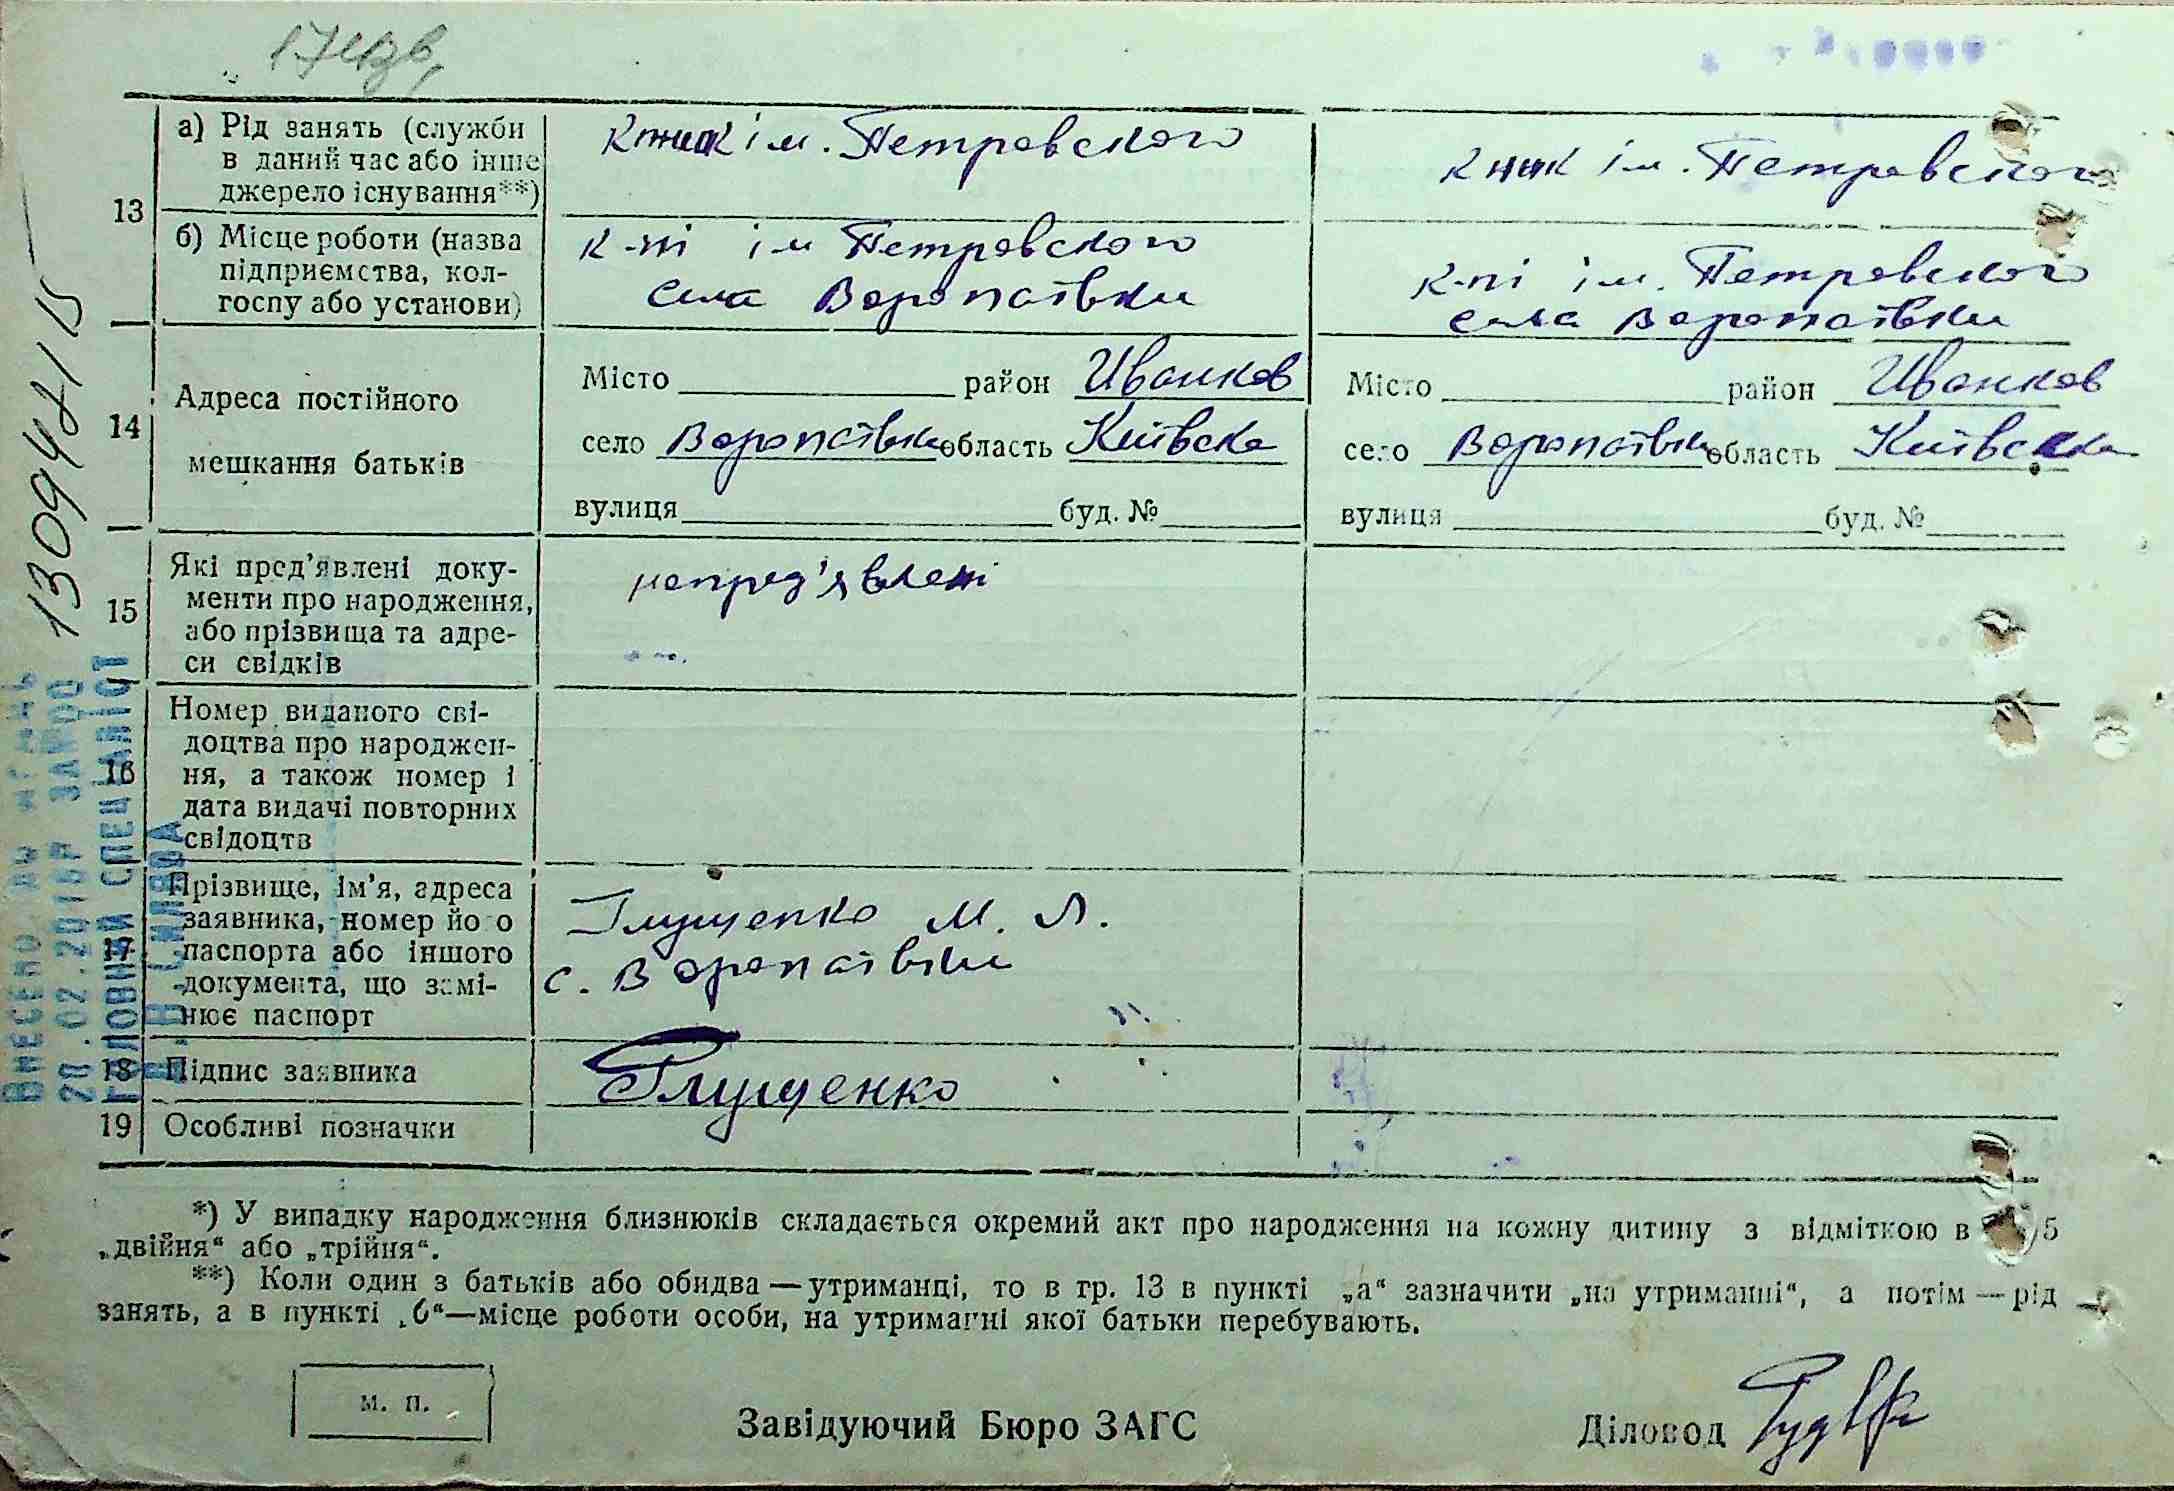 13
а) Рід занять (служби
в даний час або інше
джерело існування**)
к-ник ім. Петровского
к-ник ім. Петровского
б) Місце роботи (назва
підприємства, кол-
госпу або установи)
к-пі ім Петровского
села Воропаївки
к-пі ім. Петровского
села Воропаївки
14
Адреса постійного
мешкання батьків
Місто район Иванков
село Воропаївка область Київска
вулиця буд. №
Місто район Иванков
село Воропаївка область Київска
вулиця буд. №
15
Які пред’явлені доку-
менти про народження,
або прізвища та адре-
си свідків
непред’явлені
16
Номер виданого сві-
доцтва про народжен-
ня, а також номер і
дата видачі повторних
свідоцтв
17
Прізвище, ім’я, адреса
заявника, номер його
паспорта або іншого
документа, що замі-
нює паспорт
Глущенко М. Л.
с. Воропаївки
18
Підпис заявника
Глущенко
19
Особливі позначки
*) У випадку народження близнюків складається окремий акт про народження на кожну дитину з відміткою в 5
„двійня“ або „трійня“.
**) Коли один з батьків або обидва — утриманці, то в гр. 13 в пункті „а“ зазначити „на утриманні“, а потім — рід
занять, а в пункті „б“—місце роботи особи, на утриманні якої батьки перебувають.
м. п.
Завідуючий Бюро ЗАГС
Діловод
ГОЛОВНИЙ СПЕЦІАЛІСТ